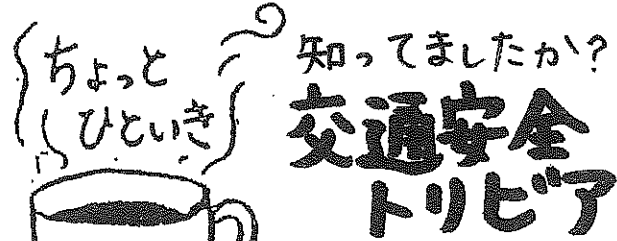 ちょっと
ひといき
知ってましたか?
交通安全
トリビア